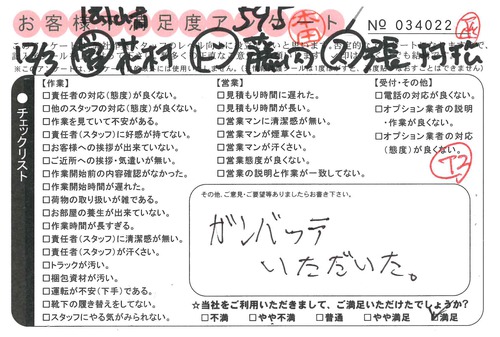 お客様満足度アンケート
545
No 034022
12/3
チェックリスト
【作業】
□責任者の対応(態度)が良くない。
□他のスタッフの対応(態度)が良くない。
□作業を見ていて不安がある。
□責任者(スタッフ)に好感が持てない。
□お客様への挨拶が出来ていない。
□ご近所への挨拶・気遣いが無い。
□作業開始前の内容確認がなかった。
□作業開始時間が遅れた。
□荷物の取り扱いが雑である。
□お部屋の養生が出来ていない。
□作業時間が長すぎる。
□責任者(スタッフ)に清潔感が無い。
□責任者(スタッフ)が汗くさい。
□トラックが汚い。
□梱包資材が汚い。
□運転が不安(下手)である。
□靴下の履き替えをしてない。
□スタッフにやる気がみられない。
【営業】
□見積もり時間に遅れた。
□見積り時間が長い。
□営業マンに清潔感が無い。
□営業マンが煙草くさい。
□営業マンが汗くさい。
□営業態度が良くない。
□営業の説明と作業が一致してない。
【受付・その他】
□電話の対応が良くない。
□オプション業者の説明
・作業が良くない。
□オプション業者の対応
(態度)が良くない。
その他、ご意見・ご要望等ありましたらお書き下さい。
ガンバッテ
いただいた。
☆当社をご利用いただきまして、ご満足いただけたでしょうか?
□不満 □やや不満 □普通 □やや満足 ☑満足